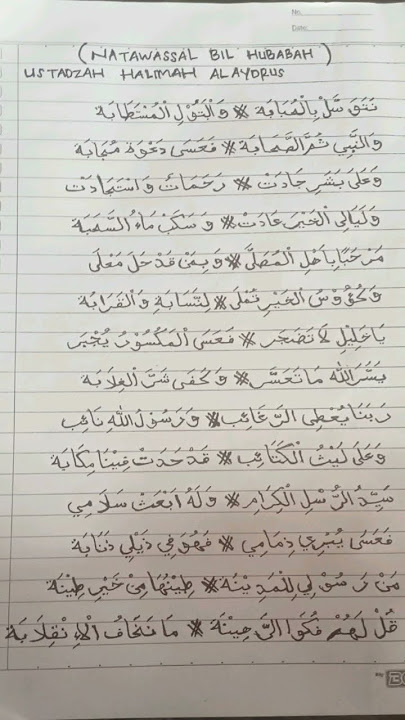 No.
Date:
( NATAWASSAL BIL HUBABAH )
USTADZAH HALIMAH ALAYDRUS
نَتَوَسَّلْ بِالْحُبَابَةِ * وَالْبَتُوْلِ الْمُسْتَطَابَةِ
وَالنَّبِي ثُمَّ الصَّحَابَةِ * فَعَسَى دَعْوَةْ مُجَابَةِ
وَعَلَى بَشَرِ جَادَتْ * رَحَمَاتٌ وَاسْتَجَادَتْ
وَلَيَالِي الْخَيْرِ عَادَتْ * وَسَكَبْ مَاءُ السَّحَابَةِ
مَرْحَبًا بِاَهْلِ الْمُصَلَّى * وَبِمَنْ قَدْ حَلَ مَعْلَى
وَكُؤُوْسُ الْخَيْرِ تُمْلَى * لِلصَّحَابَةِ وَالْقَرَابَةِ
يَاخَلِيْلِي لَا تَضْجَرْ * فَعَسَى الْمَكْسُوْرُ يُجْبَرْ
يَسَّرَ اللّٰه مَا تَعَسَّرْ * وَكُفَى شَرَّ الْغِلَابَةِ
رَبَّنَا يُعْطِى الرَّغَائِبْ * وَرَسُوْلُ اللّٰهِ نَائِبْ
وَعَلَى لَيْثُ الْكَتَائِبْ * قَدْ حَدَتْ فِيْنَا مِكَابَةِ
سَيِّدِ الرُّسْلِ الْكِرَامِ * وَلَهُ ابْعَثْ سَلَامِي
فَعَسَى يُبْرِي ذِمَامِي * فَهُوَ فِي ذَيْلِي ذَنَابَةِ
مَنْ رَسُوْلِي لِلْمَدِيْنَةِ * طِيْنُهَا مِنْ خَيْرِ طِيْنَةِ
قُلْ لَهُمْ فُكُوا الرَّهِيْنَةِ * مَا نَخَافُ الْاِنْقِلَابَةِ